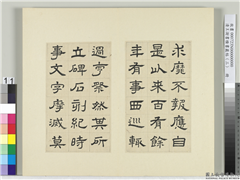 求靡不報應自
是以來百有餘
年有事西巡輒
過亨祭然其所
立碑石刻紀時
事文字摩滅莫
11